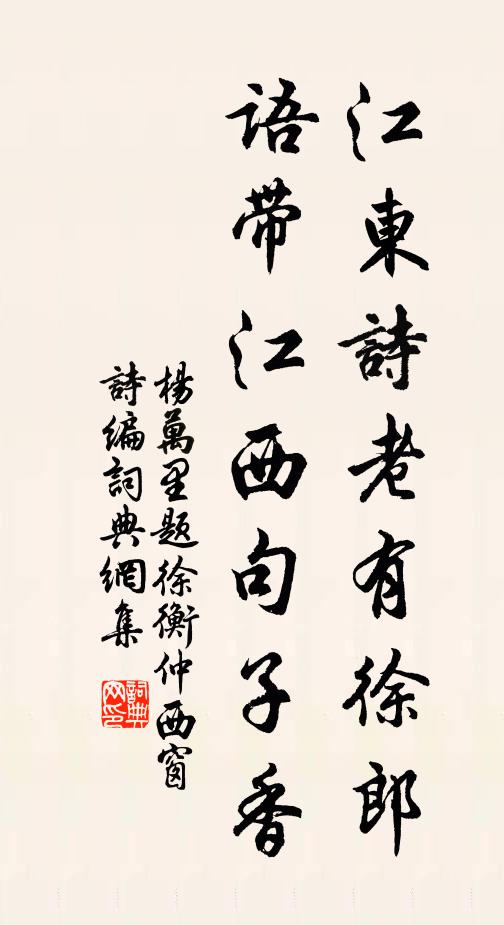 江東詩老有徐郎
語帶江西句子香
楊萬里題徐衡仲西窗
詩編詞典網集
詞典
网印